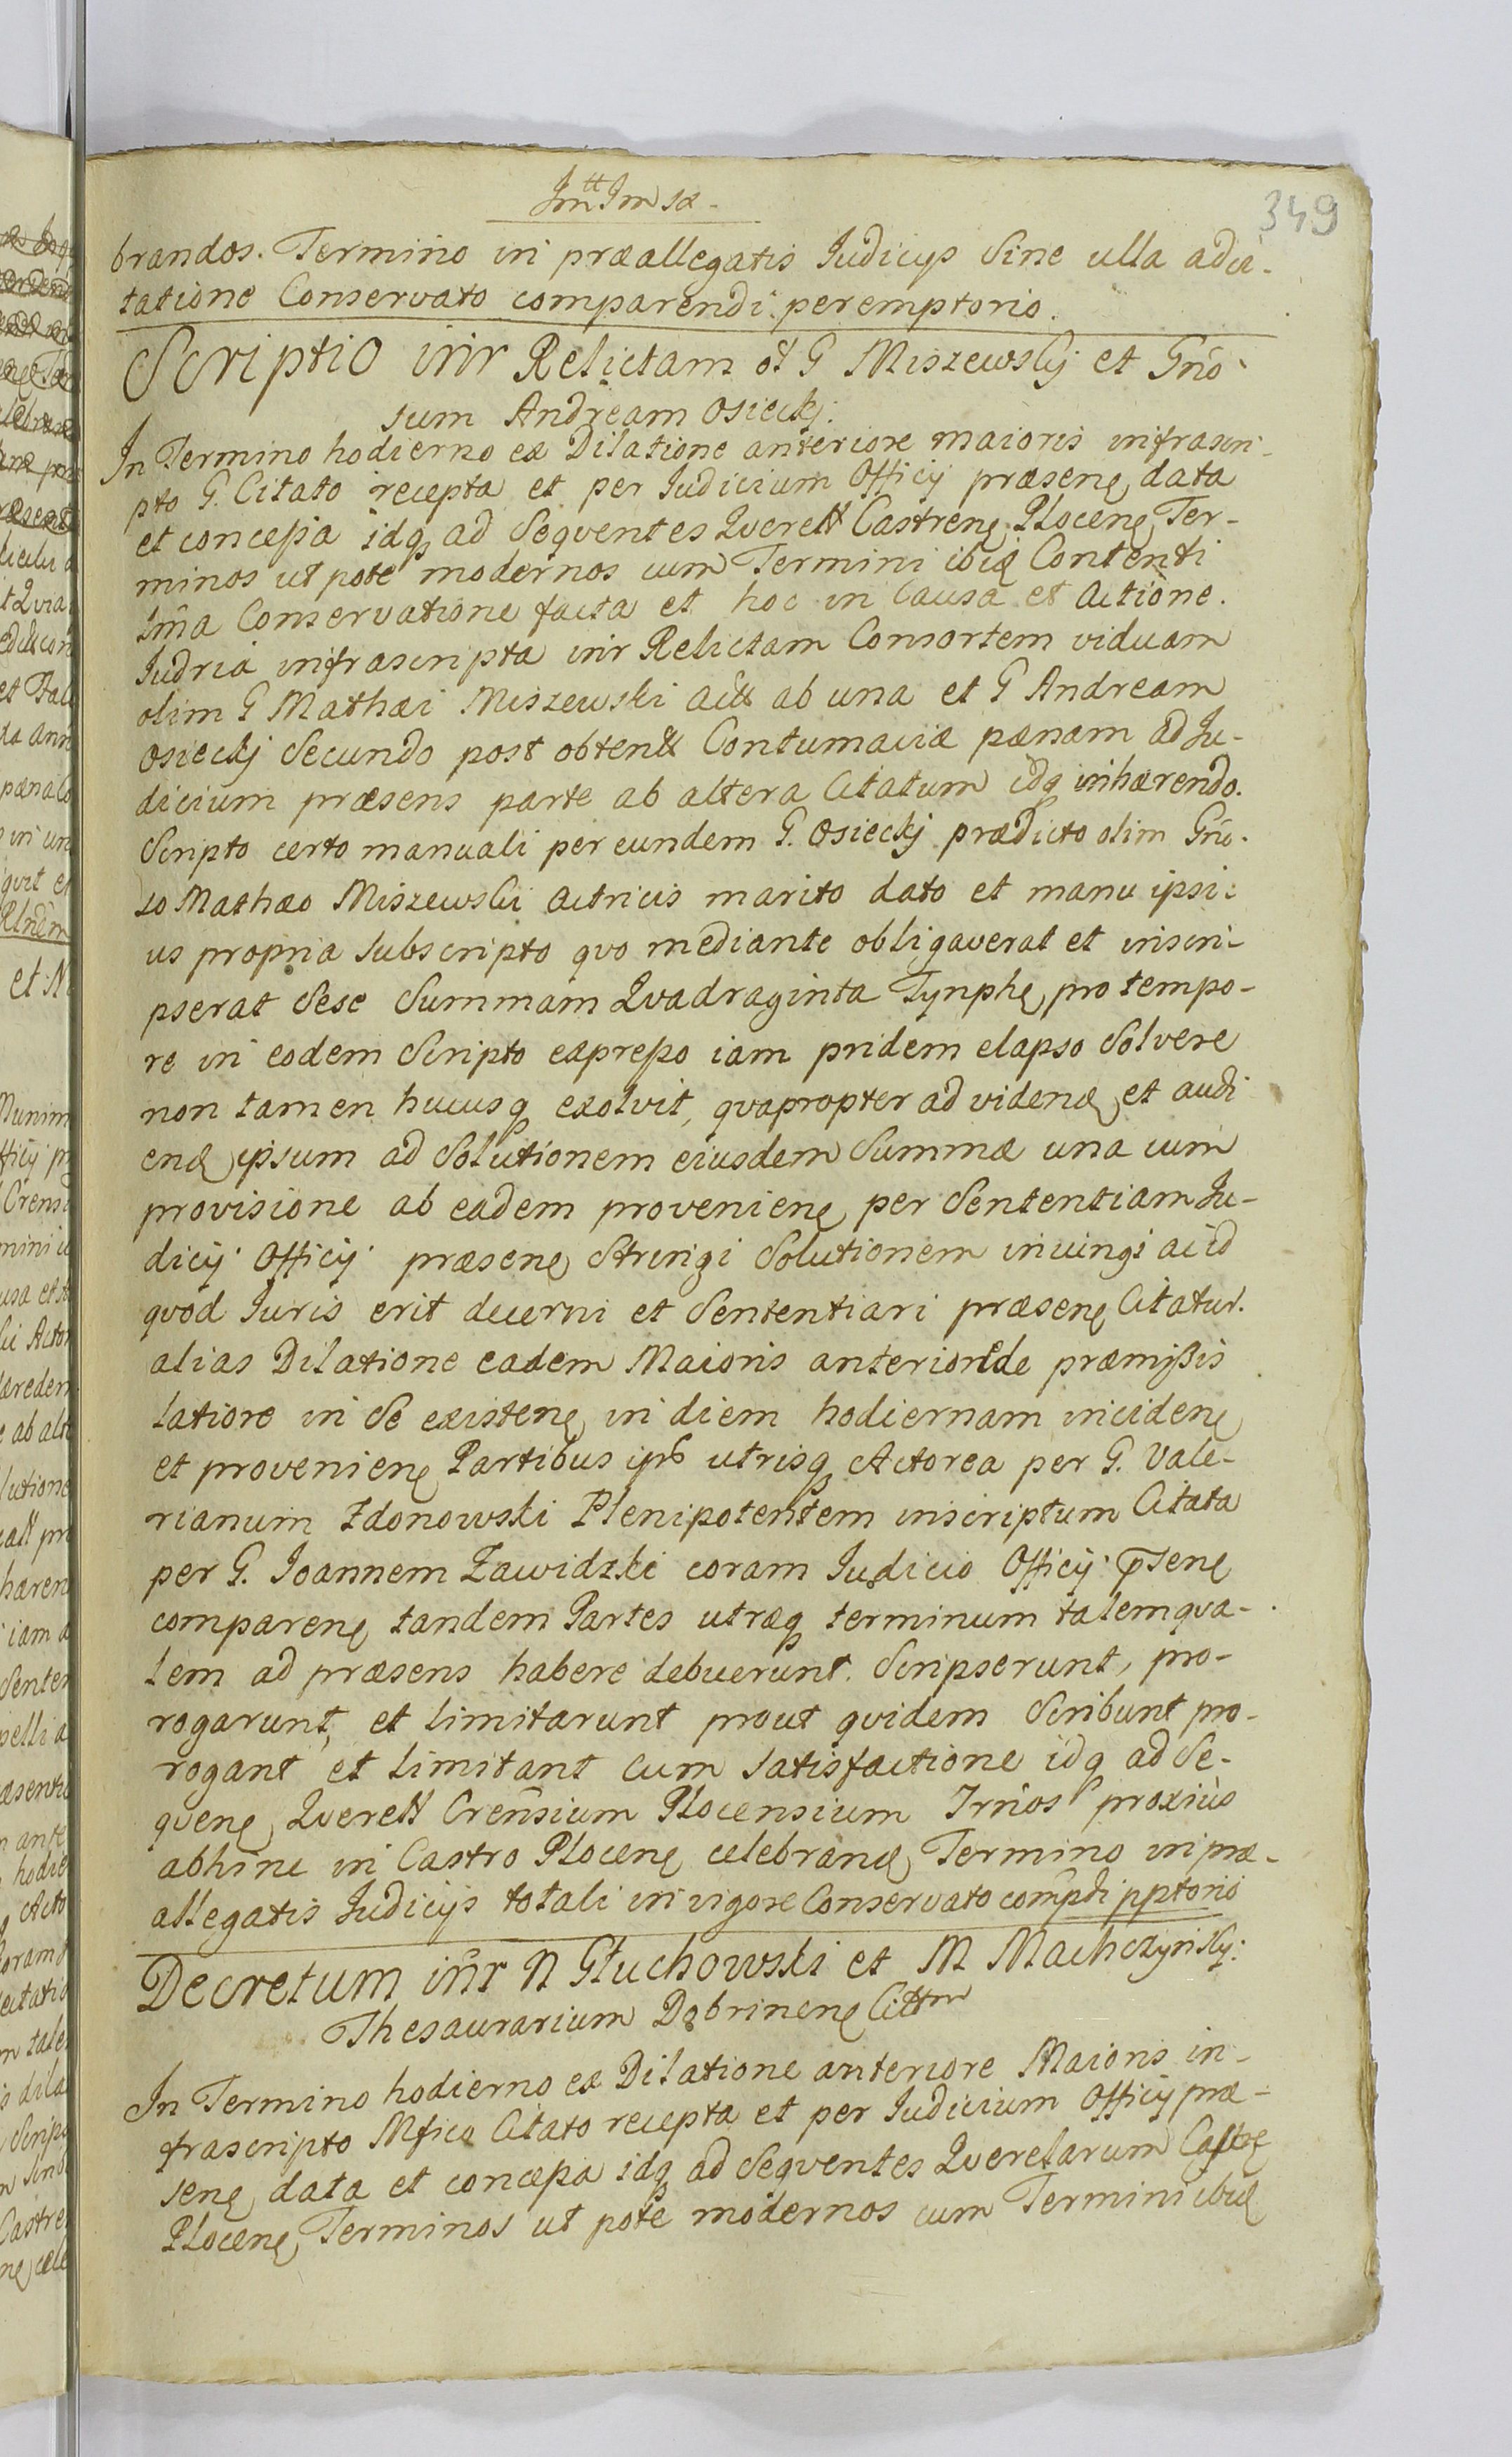 349
brandos. Termino in præallegatis Judicijs Sine ulla adci-
tatione Conservato comparendi peremptorio.
Scriptio intr Relictam ol G Miszewskj et Gno-
sum Andream Osieckj.
In Termino hodierno ex Dilatione anteriore maioris infrascri-
pto G. Citato recepta et per Iudicium Officij præsenę data
et concessa idq ad Seqventes Qverell Castrenę Plocenę Ter-
minos ut pote modernos cum Termini ibid Contenti
Conservatione facta et hoc in Causa et Actione.
Iudria infrascripta intr Relictam Consortem viduam
olim G Mathæi Miszewski act ab una et G Andream
Osieckj Secundo post obtent Contumaciæ pænam ad Iu-
dicium præsens parte ab altera Citatum idq inhærendo.
Scripto certo manuali per eundem G. Osieckj prædicto olim Gno-
so Mathæo Miszewski actricis marito dato et manu ipsi-
us propria subscripto qvo mediante obligaverat et inscri-
pserat Sese Summam Qvadraginta Tynphę pro tempo-
re in eodem Scripto expresso iam pridem elapso Solvere
non tamen hucusq exolvit, qvapropter ad videnđ et audi
enđ ipsum ad Solutionem eiusdem Summæ una cum
provisione ab eadem provenienę per Sententiam Iu-
dicij Officij præsenę Stringi Solutionem iniungi ac id
qvod Iuris erit decerni et Sententiari præsenę Citatur.
alias Dilatione eadem Maioris anteriore de præmissis
latiore in Se existenę in diem hodiernam incidenę
et provenienę Partibus ips utrisq Actorea per G. Vale-
rianum Zdonowski Plenipotentem inscriptum Citata
per G. Ioannem Zawidzki coram Iudicio Officij p̄senę
comparenę tandem Partes utræq terminum talemqva-
lem ad præsens habere debuerunt. Scripserunt, pro-
rogarunt, et limitarunt prout qvidem Scribunt pro-
rogant et limitant cum satisfactione idq ad Se-
qvenę Qverell Crensium Plocensium Trnos proxius
abhinc in Castro Plocenę celebranđ Termino in præ-
allegatis Judicijs totali in vigore Conservato compđi pptorio
Decretum intr N Głuchowski et M Machczynskj:
Thesaurarium Dobrinenę Cittm
In Termino hodierno ex Dilatione anteriore Maioris in-
frascripto Mfico Citato recepta et per Iudicium Officij præ-
senę data et concessa idq ad Seqventes Qverelarum Castrę
Plocenę Terminos ut pote modernos cum Termini ibid